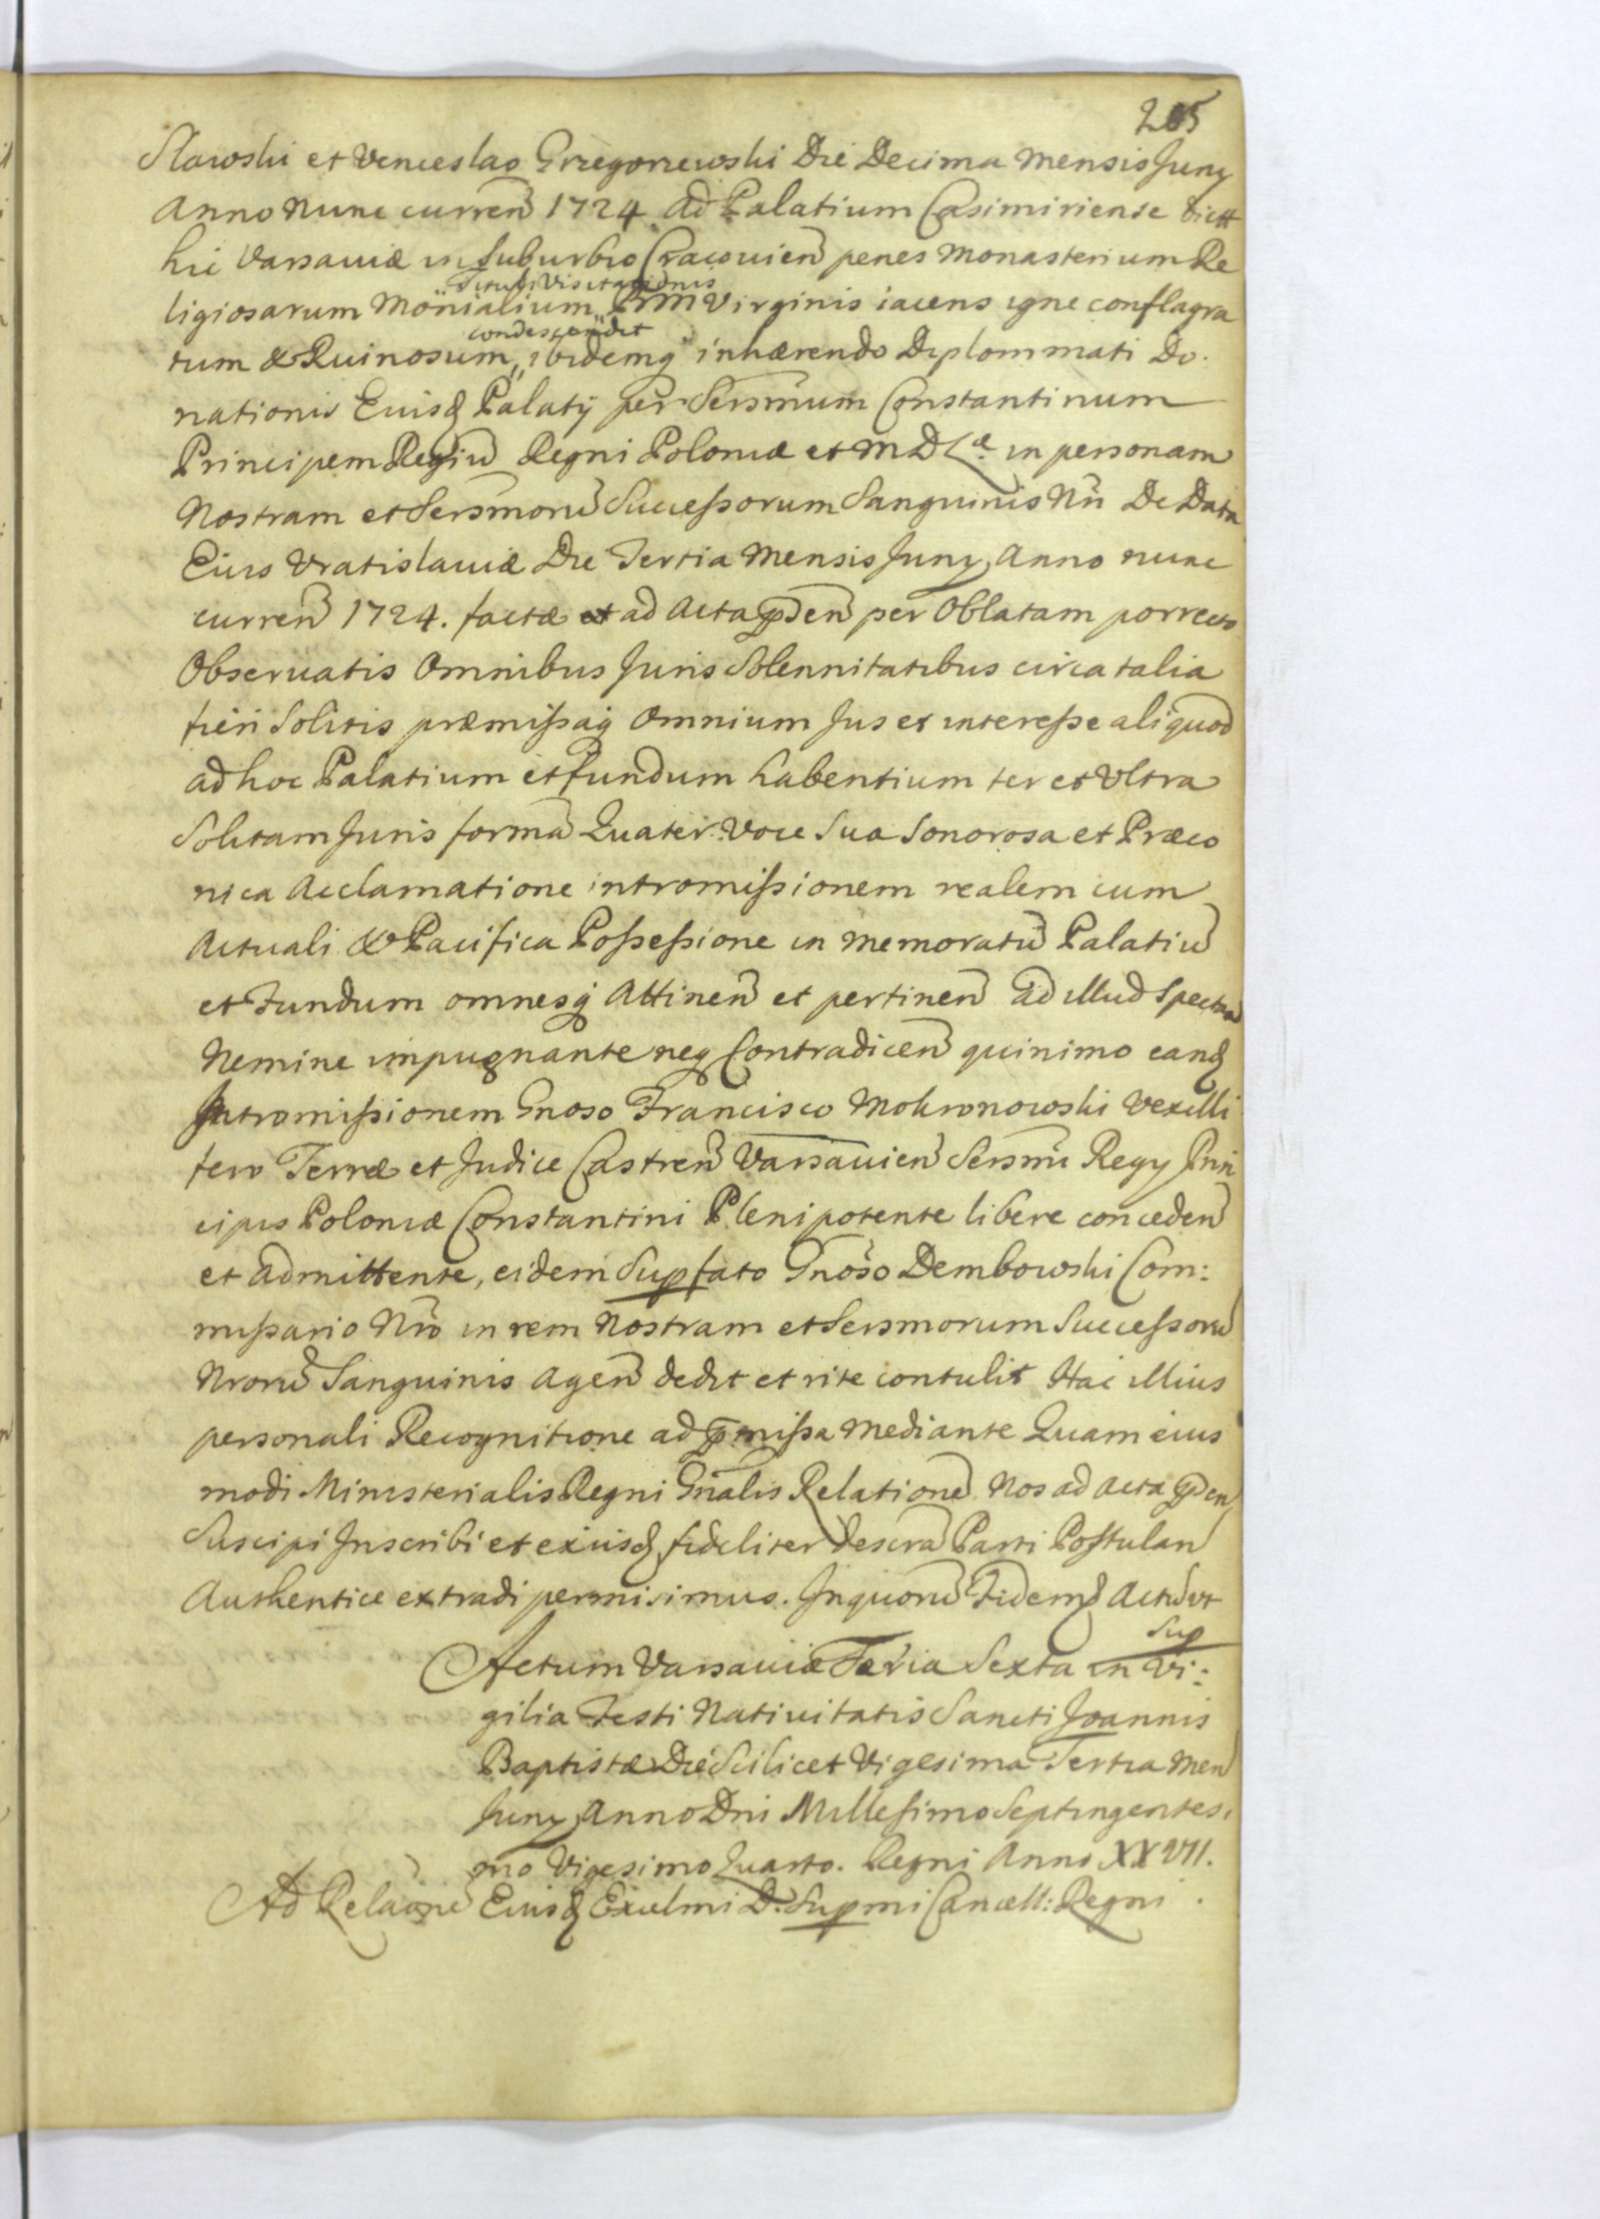 205
Slawski et Venceslao Grzegorzewski Die Decima Mensis Juny
Anno nunc curren 1724 ad Palatium Casimiriense dictt
hic Varsaviæ in Suburbio Cracovien penes Monasterium Re
Tituli Visitationis
ligiosarum Monialium BVM Virginis iacens igne conflagra
condescendit
tum & Ruinosum, ibidemq inhærendo Diplommati Do.
nationis Eiusd Palatÿ per Sersmum Constantinum
Principem Regiu Regni Poloniæ et M D Læ in personam
Nostram et Sersmoru Successorum Sanguinis Nri De Data
Eius Vratislaviæ Die Tertia Mensis Juny Anno nunc
curren 1724. factæ et ad Acta pden per Oblatam porrecto
Observatis Omnibus Juris Solennitatibus circa talia
fieri Solitis præmissaq Omnium Jus et interesse aliquod
ad hoc Palatium et fundum habentium ter et Ultra
Solitam Juris forma Quater voce Sua Sonorosa et Præco
nica Acclamatione intromissionem realem cum
Actuali & Pacifica Possessione in memoratu Palatiu
et Fundum omnesq Attinen et pertinen ad illud Spectan
Nemine impugnante neq Contradicen quinimo eand
Intromissionem Gnoso Francisco Mokronowski Vexilli
fero Terræ et Judice Castren Varsavien Sersmi Regy Prin
cipis Poloniæ Constantini Plenipotente libere conceden
et admittente, eidem Supfato Gnoso Dembowski Com:
missario Nro in rem Nostram et Sersmorum Successoru
Nroru Sanguinis Agen dedit et rite contulit Hac illius
personali Recognitione ad pmissa mediante Quam eius
modi Ministerialis Regni Gnalis Relatione Nos ad Acta pden
Suscipi Inscribi et exiisd fideliter descra Parti Postulan
Authentice extradi permisimus. In quoru Fidem Actu ut
Sup
Actum Varsaviæ Feria Sexta in Vi:
gilia Festi Nativitatis Sancti Joannis
Baptistæ Die Scilicet Vigesima Tertia Men
Juny Anno Dni Millesimo Septingentesi
mo Vigesimo Quarto. Regni Anno XXVII.
Ad Relaone Eiusd Excelmi D. Supmi Cancell: Regni.